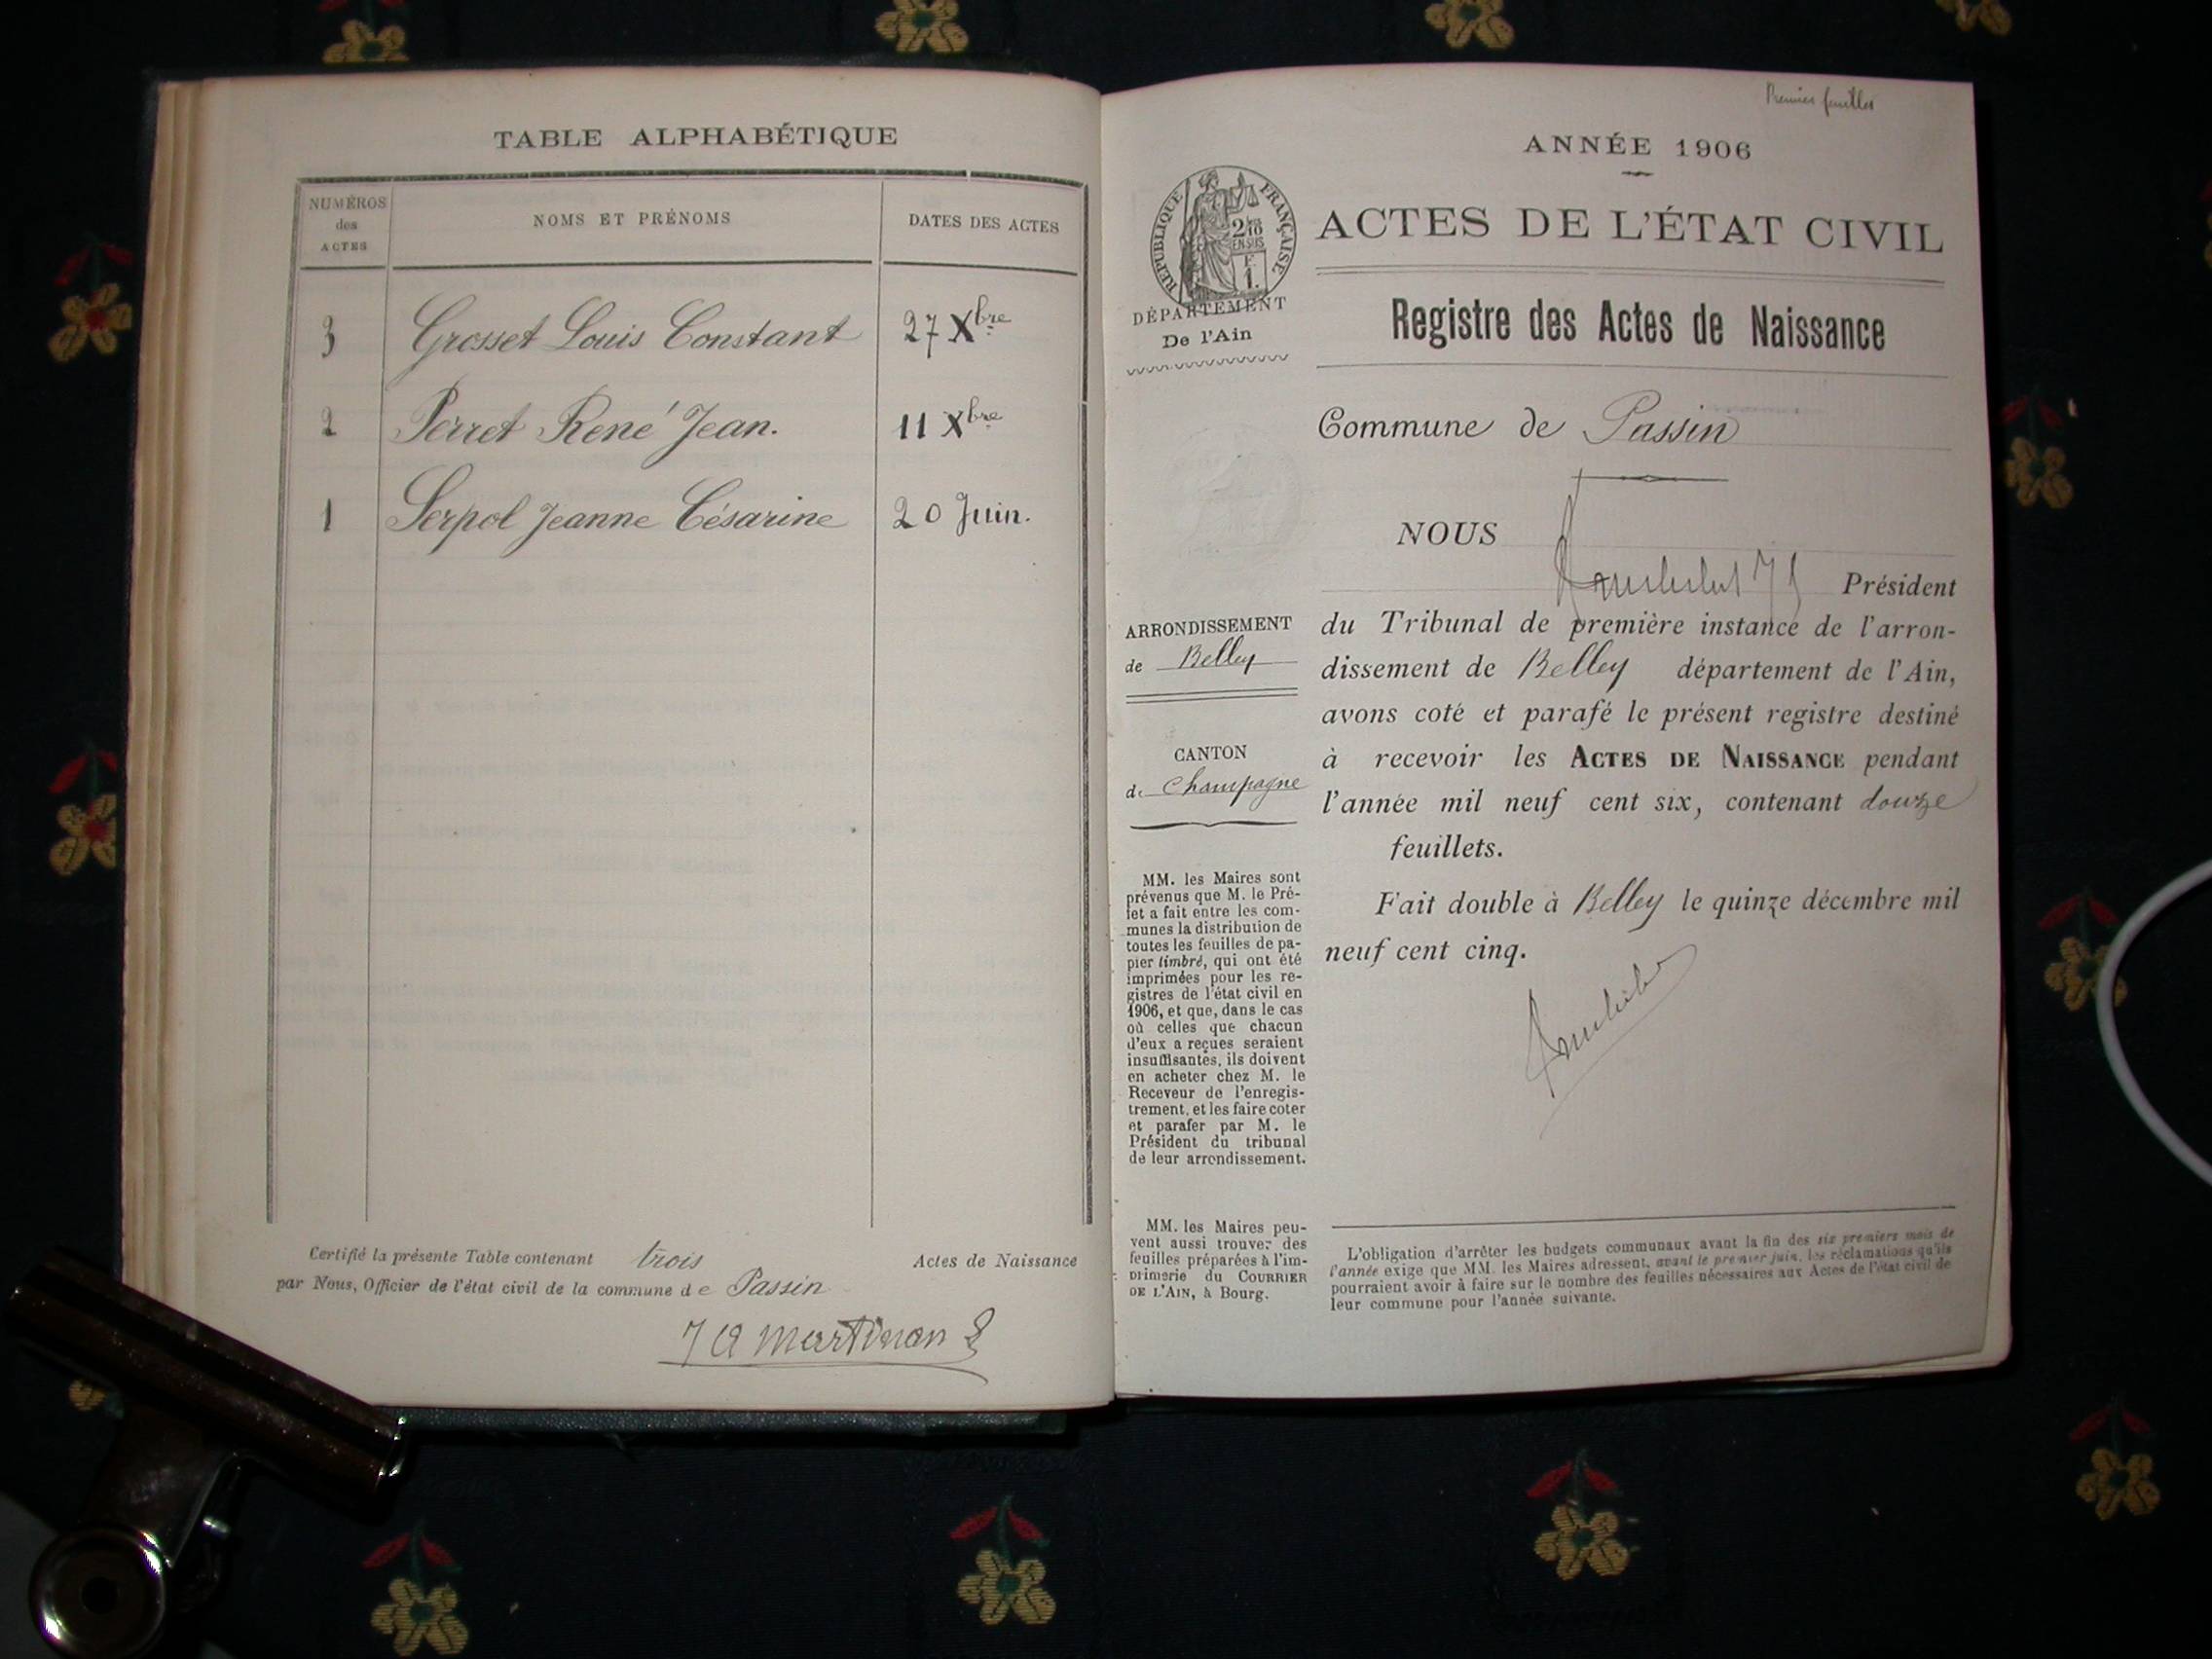 TABLE ALPHABÉTIQUE
NUMÉROS
des
ACTES
NOMS ET PRÉNOMS
DATES DES ACTES
3 Grosset Louis Constant 27 Xbre
2 Perret René Jean. 11 Xbre
1 Serpol Jeanne Césarine 20 Juin.
Certifié la présente Table contenant trois Actes de Naissance
par Nous, Officier de l'état civil de la commune de Passin
Martinan
Premier feuillet
ANNÉE 1906
RÉPUBLIQUE FRANÇAISE
2/10
EN SUS
F.
1.
DÉPARTEMENT
De l'Ain
ACTES DE L'ÉTAT CIVIL
Registre des Actes de Naissance
Commune de Passin
NOUS
Président
du Tribunal de première instance de l'arron-
dissement de Belley département de l'Ain,
avons coté et parafé le présent registre destiné
à recevoir les ACTES DE NAISSANCE pendant
l'année mil neuf cent six, contenant douze
feuillets.
Fait double à Belley le quinze décembre mil
neuf cent cinq.
ARRONDISSEMENT
de Belley
CANTON
de Champagne
MM. les Maires sont
prévenus que M. le Pré-
fet a fait entre les com-
munes la distribution de
toutes les feuilles de pa-
pier timbré, qui ont été
imprimées pour les re-
gistres de l'état civil en
1906, et que, dans le cas
où celles que chacun
d'eux a reçues seraient
insuffisantes, ils doivent
en acheter chez M. le
Receveur de l'enregis-
trement, et les faire coter
et parafer par M. le
Président du tribunal
de leur arrondissement.
MM. les Maires peu-
vent aussi trouver des
feuilles préparées à l'im-
primerie du COURRIER
DE L'AIN, à Bourg.
L'obligation d'arrêter les budgets communaux avant la fin des six premiers mois de
l'année exige que MM. les Maires adressent, avant le premier juin, les réclamations qu'ils
pourraient avoir à faire sur le nombre des feuilles nécessaires aux Actes de l'état civil de
leur commune pour l'année suivante.